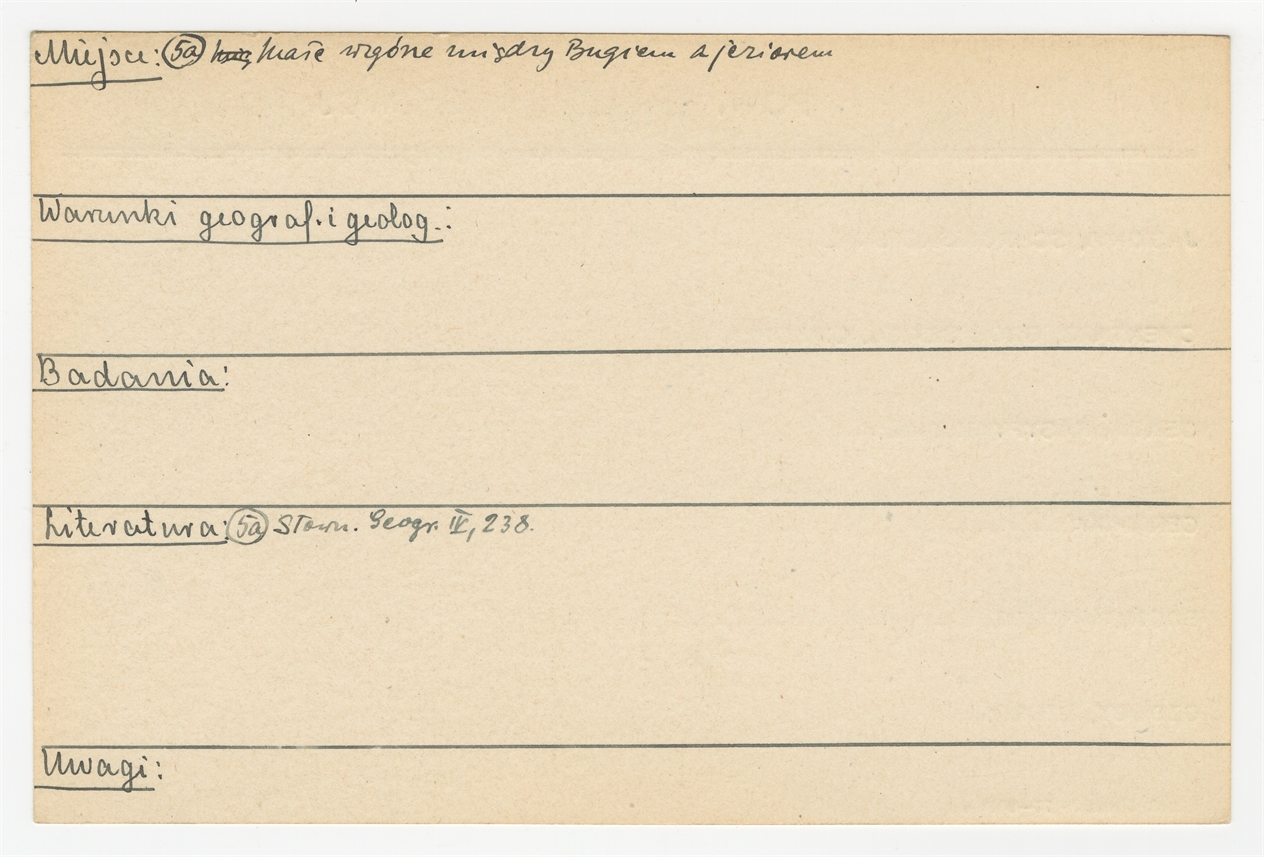 Miejsce: 5a małe wzgórze między Bugiem a jeziorem
Warunki geograf. i geolog.:
Badania:
Literatura: 5a Słown. Geogr. IV, 238.
Uwagi: